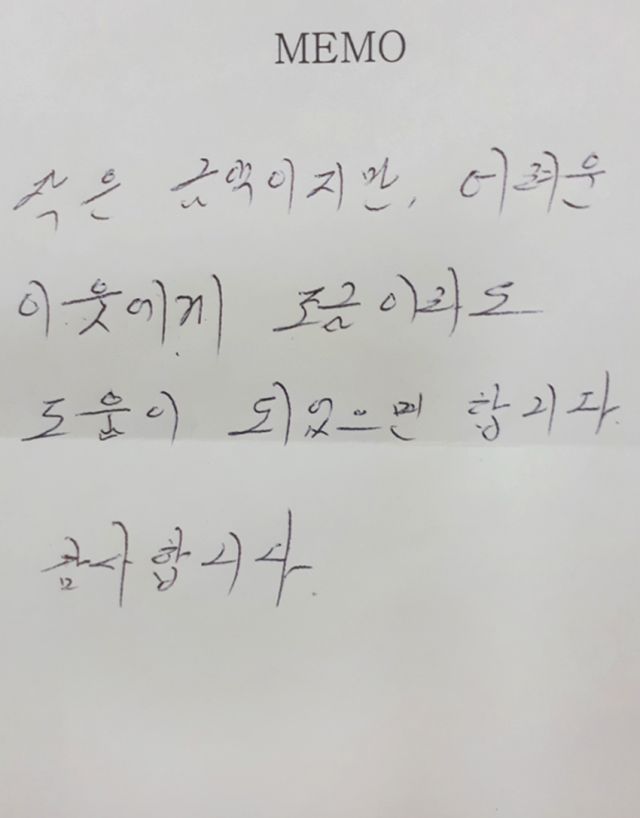 MEMO
작은 금액이지만, 어려운
이웃에게 조금이라도
도움이 되었으면 합니다.
감사합니다.